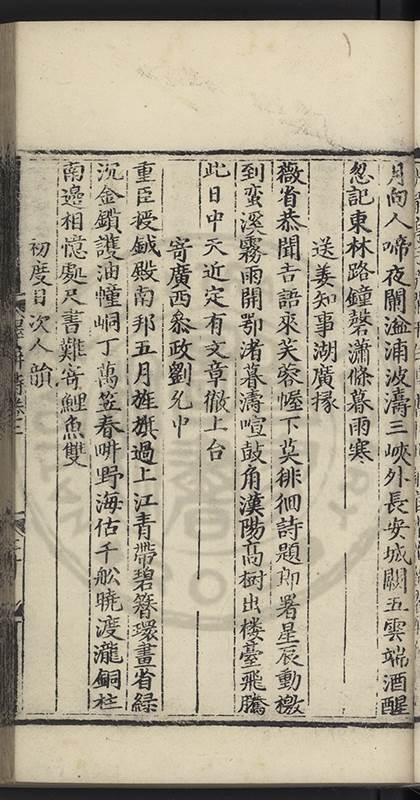 月向人啼夜闌溢浦波濤三峽外長安城闕五雲端酒醒
忽記東林路鐘磬瀟條暮雨寒
送姜知事湖廣掾
薇省恭聞吉語來芙蓉幄下莫徘徊詩題郎署星辰動檄
到蛮溪霧雨開鄂渚暮濤喧鼓角漢陽髙樹出楼臺飛騰
此日中天近定有文章徹上台
寄廣西叅政劉允中
重臣授鉞殿南邦五月旌旗過上江青帶碧簪環畫省緑
沉金鎖護油幢峒丁萬笠春畊野海估千舩曉渡瀧銅柱
南邊相憶處尺書難寄鯉魚雙
初度日次人韻